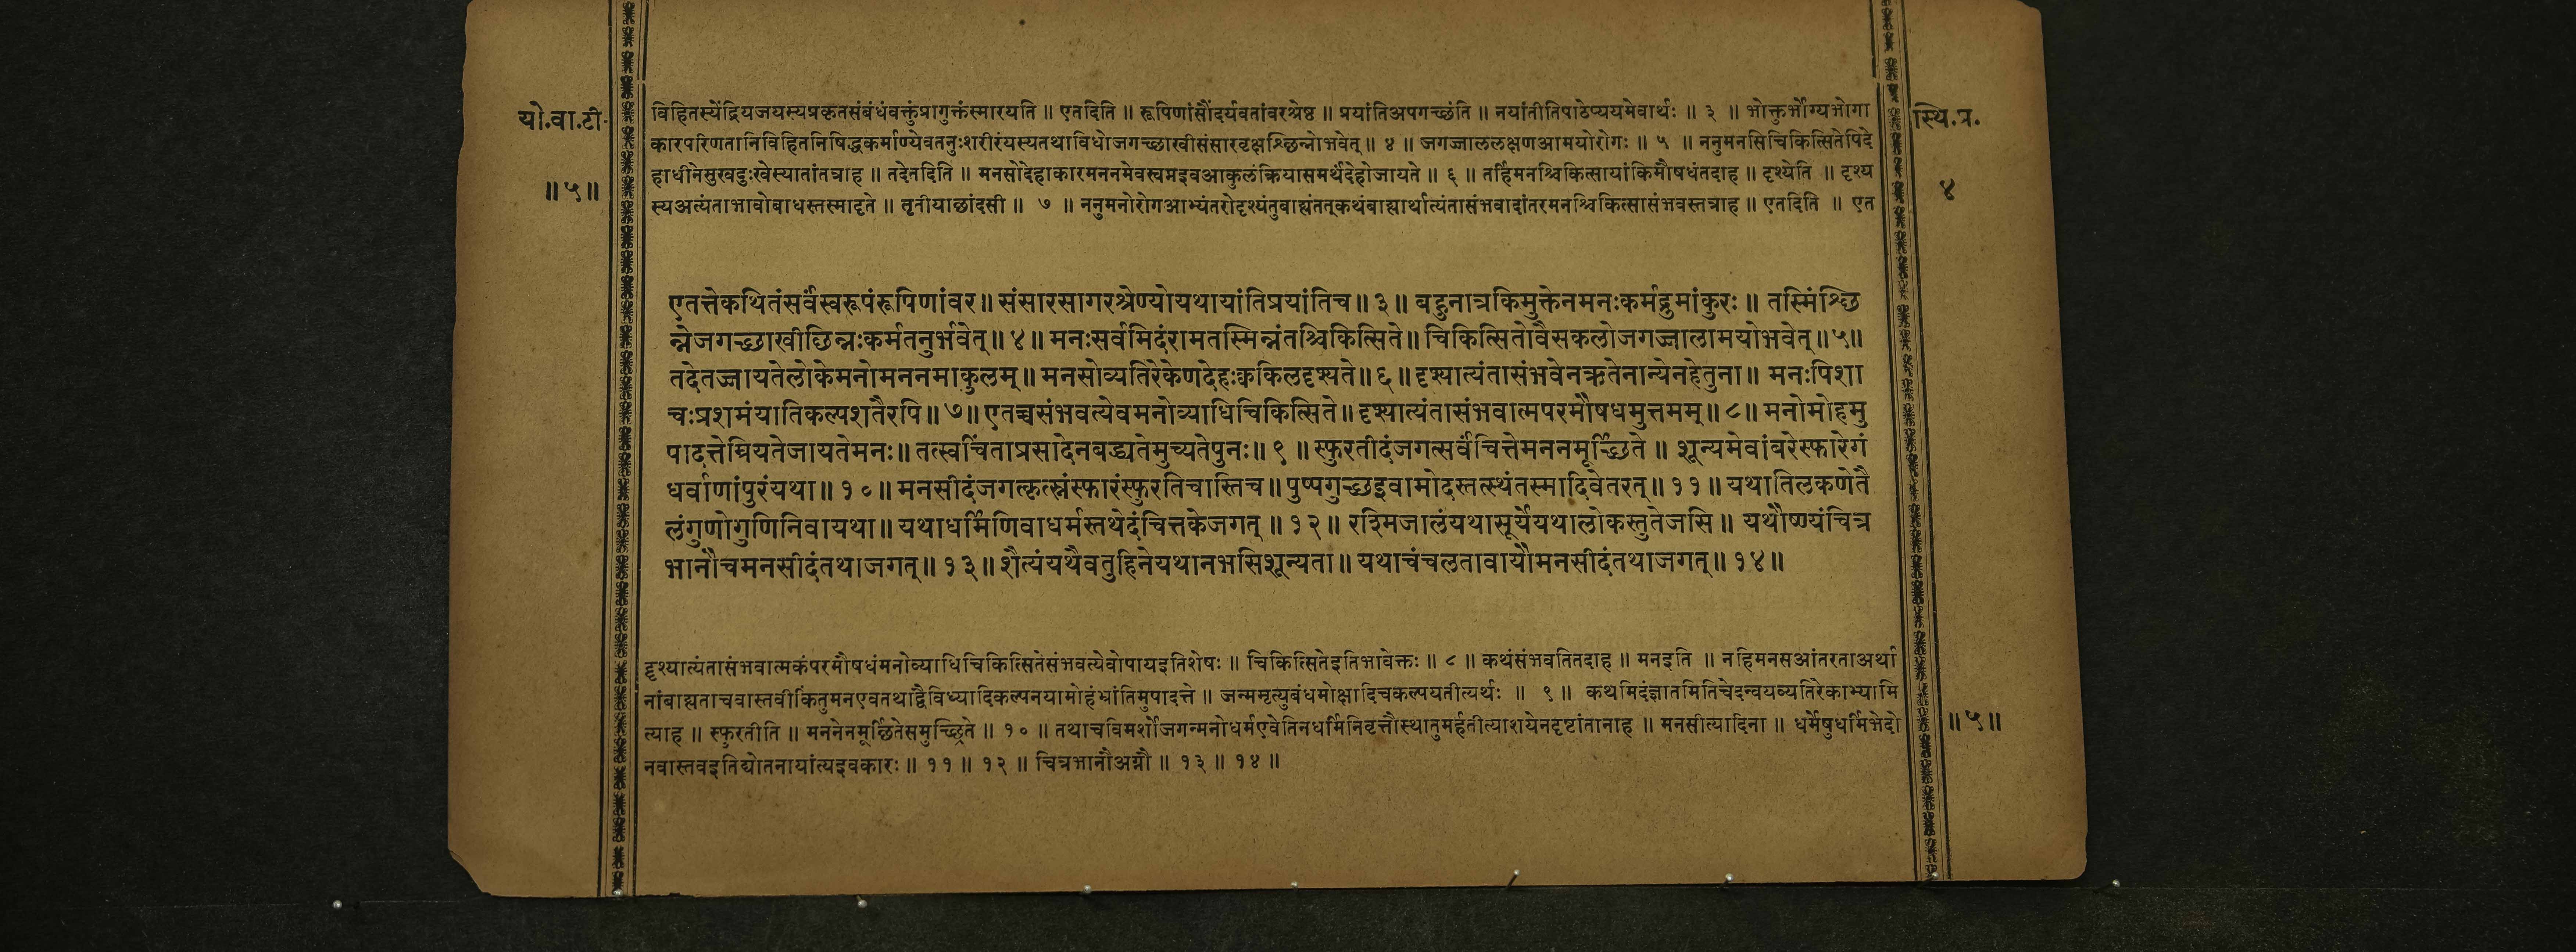 यो.वा.टी.
॥५॥
स्थि.प्र.
४
विहितस्येंद्रियजयस्यप्रकृतसंबंधंवक्तुंप्रागुक्तंस्मारयति ॥ एतदिति ॥ रूपिणांसौंदर्यवतांवरश्रेष्ठ ॥ प्रयांतिअपगच्छंति ॥ नयांतीतिपाठेप्ययमेवार्थः ॥ ३ ॥ भोक्तुर्भोग्यभोगा
कारपरिणतानिविहितनिषिद्धकर्माण्येवतनुःशरीरंयस्यतथाविधोजगच्छाखीसंसारवृक्षश्छिन्नोभवेत् ॥ ४ ॥ जगज्जाललक्षणआमयोरोगः ॥ ५ ॥ ननुमनसिचिकित्सितेपिदे
हाधीनेसुखदुःखेस्यातांतत्राह ॥ तदेतदिति ॥ मनसोदेहाकारमननमेवस्वमइवआकुलंक्रियासमर्थंदेहोजायते ॥ ६ ॥ तर्हिमनश्चिकित्सायांकिमौषधंतदाह ॥ दृश्येति ॥ दृश्य
स्यअत्यंताभावोबाधस्तस्मादृते ॥ तृतीयाछांदसी ॥ ७ ॥ ननुमनोरोगआभ्यंतरोदृश्यंतुबाह्यंतत्कथंबाह्यार्थात्यंतासंभवादांतरमनश्चिकित्सासंभवस्तत्राह ॥ एतदिति ॥ एत
एतत्तेकथितंसर्वंस्वरूपंरूपिणांवर॥ संसारसागरश्रेण्योयथायांतिप्रयांतिच॥ ३॥ बहुनात्रकिमुक्तेनमनःकर्मद्रुमांकुरः॥ तस्मिंश्छि
न्नेजगच्छाखीछिन्नःकर्मतनुर्भवेत्॥ ४॥ मनःसर्वमिदंरामतस्मिन्नंतश्चिकित्सिते॥ चिकित्सितोवैसकलोजगज्जालामयोभवेत्॥५॥
तदेतज्जायतेलोकेमनोमननमाकुलम्॥ मनसोव्यतिरेकेणदेहःक्वकिलदृश्यते॥६॥ दृश्यात्यंतासंभवेनऋतेनान्येनहेतुना॥ मनःपिशा
चःप्रशमंयातिकल्पशतैरपि॥ ७॥ एतच्चसंभवत्येवमनोव्याधिचिकित्सिते॥ दृश्यात्यंतासंभवात्मपरमौषधमुत्तमम्॥ ८॥ मनोमोहमु
पादत्तेम्रियतेजायतेमनः॥ तत्स्वचिंताप्रसादेनबद्ध्यतेमुच्यतेपुनः॥ ९॥ स्फुरतीदंजगत्सर्वंचित्तेमननमूर्च्छिते॥ शून्यमेवांबरेस्फारेगं
धर्वाणांपुरंयथा॥ १०॥ मनसीदंजगत्कृत्स्नंस्फारंस्फुरतिचास्तिच॥ पुष्पगुच्छइवामोदस्तत्स्थंतस्मादिवेतरत्॥ ११॥ यथातिलकणेतै
लंगुणोगुणिनिवायथा॥ यथाधर्मिणिवाधर्मस्तथेदंचित्तकेजगत्॥ १२॥ रश्मिजालंयथासूर्येयथालोकस्तुतेजसि॥ यथौष्ण्यंचित्र
भानौचमनसीदंतथाजगत्॥ १३॥ शैत्यंयथैवतुहिनेयथानभसिशून्यता॥ यथाचंचलतावायौमनसीदंतथाजगत्॥ १४॥
दृश्यात्यंतासंभवात्मकंपरमौषधंमनोव्याधिचिकित्सितेसंभवत्येवोपायइतिशेषः ॥ चिकित्सितेइतिभावेक्तः ॥ ८ ॥ कथंसंभवतितदाह ॥ मनइति ॥ नहिमनसआंतरताअर्था
नांबाह्यताचवास्तवीकिंतुमनएवतथाद्वैविध्यादिकल्पनयामोहंभ्रांतिमुपादत्ते ॥ जन्ममृत्युबंधमोक्षादिचकल्पयतीत्यर्थः ॥ ९ ॥ कथमिदंज्ञातमितिचेदन्वयव्यतिरेकाभ्यामि
त्याह ॥ स्फुरतीति ॥ मननेनमूर्छितेसमुच्छ्रिते ॥ १० ॥ तथाचविमर्शेजगन्मनोधर्मएवेतिनधर्मिनिवृत्तौस्थातुमर्हतीत्याशयेनदृष्टांतानाह ॥ मनसीत्यादिना ॥ धर्मेषुधर्मिभेदो
नवास्तवइतिद्योतनायांत्यइवकारः ॥ ११ ॥ १२ ॥ चित्रभानौअग्नौ ॥ १३ ॥ १४ ॥
॥५॥